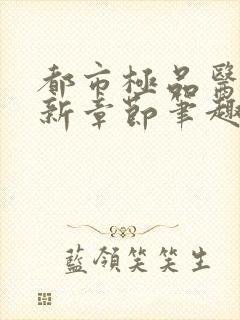 都市極品醫
新章節筆趣
藍領笑笑生